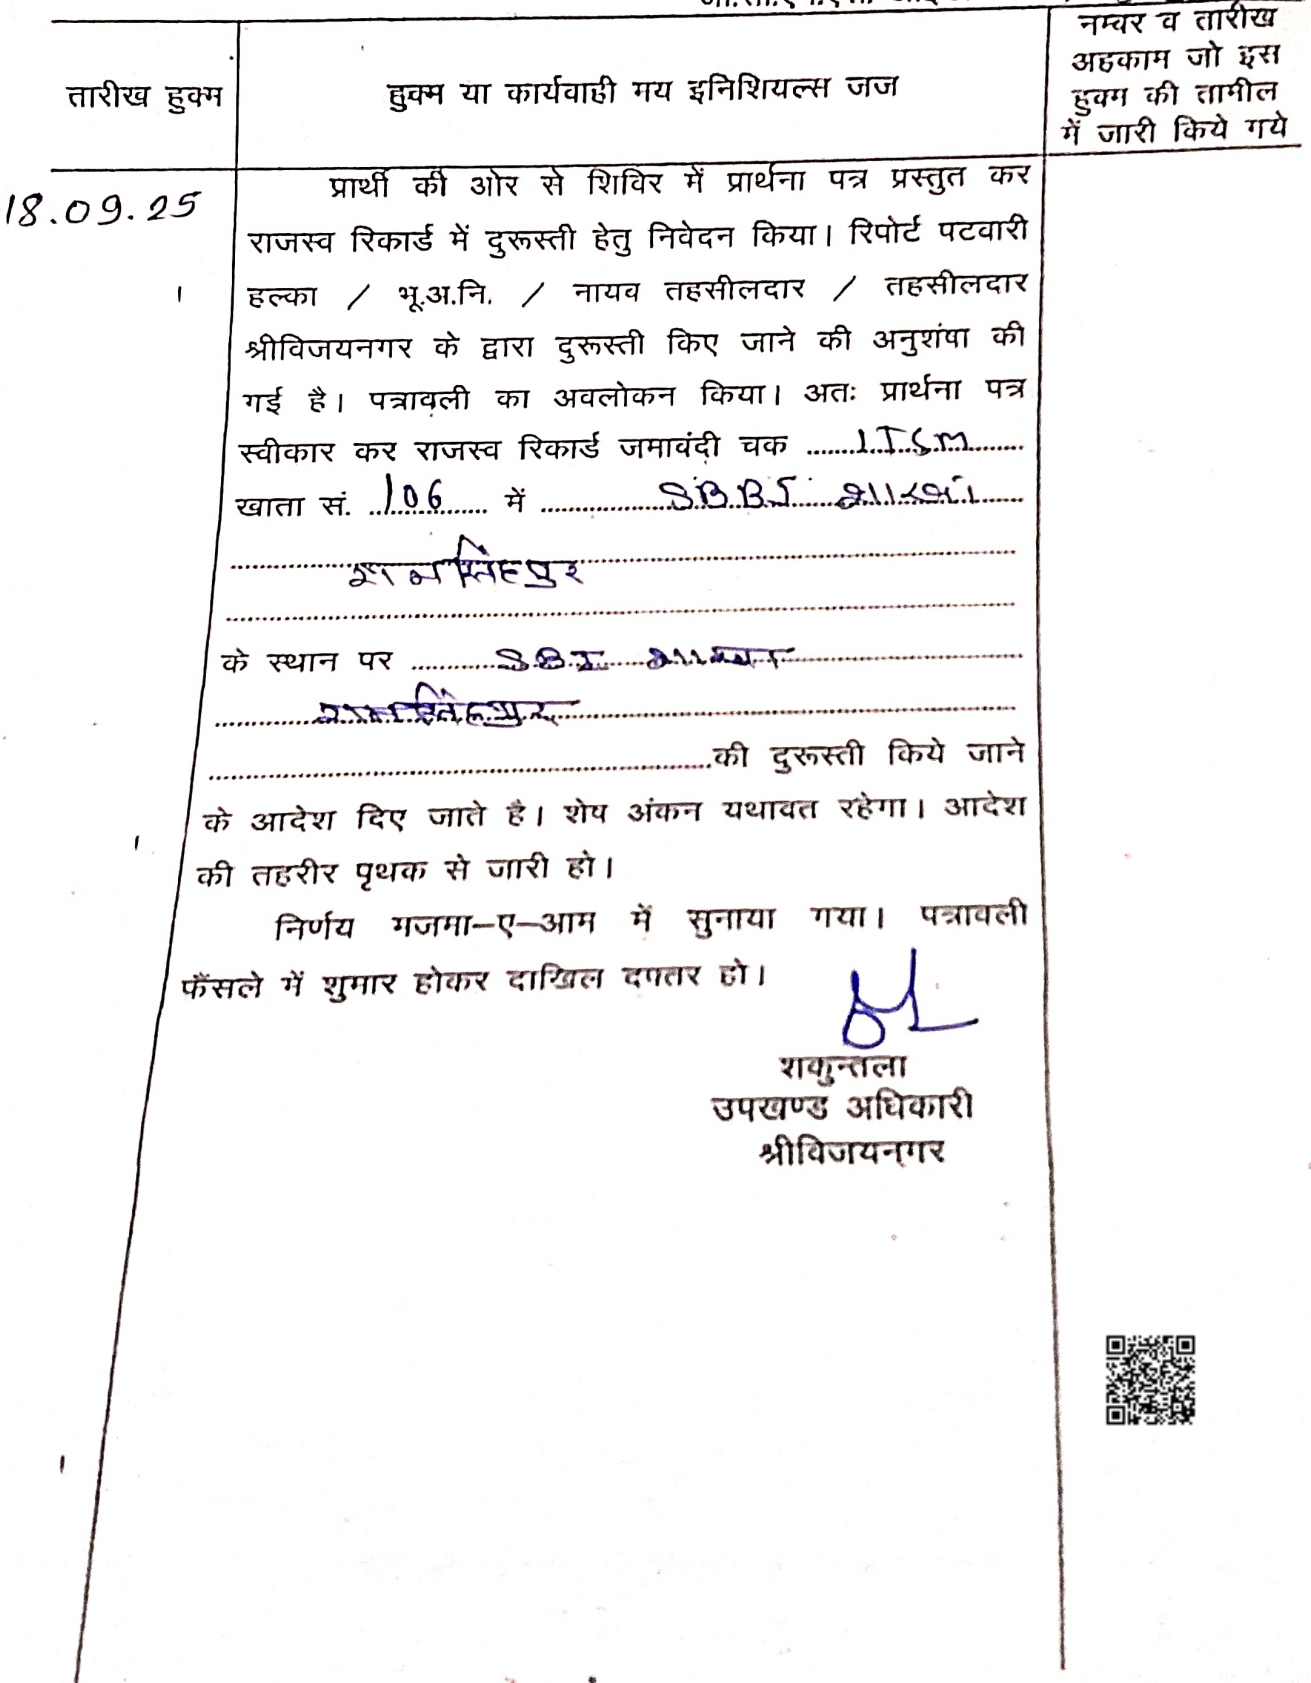 नम्बर व तारीख
अहकाम जो इस
हुक्म की तामील
में जारी किये गये
तारीख हुक्म
हुक्म या कार्यवाही मय इनिशियल्स जज
18.09.25
प्रार्थी की ओर से शिविर में प्रार्थना पत्र प्रस्तुत कर
राजस्व रिकार्ड में दुरूस्ती हेतु निवेदन किया। रिपोर्ट पटवारी
हल्का / भू.अ.नि. / नायव तहसीलदार / तहसीलदार
श्रीविजयनगर के द्वारा दुरूस्ती किए जाने की अनुशंषा की
गई है। पत्रावली का अवलोकन किया। अतः प्रार्थना पत्र
स्वीकार कर राजस्व रिकार्ड जमाबंदी चक
खाता सं. 106 में SBBJ शाखा
रामसिंहपुर
के स्थान पर SBI शाखा
रामसिंहपुर
की दुरूस्ती किये जाने
के आदेश दिए जाते है। शेष अंकन यथावत रहेगा। आदेश
की तहरीर पृथक से जारी हो।
निर्णय मजमा-ए-आम में सुनाया गया। पत्रावली
फैंसले में शुमार होकर दाखिल दफ्तर हो।
शकुन्तला
उपखण्ड अधिकारी
श्रीविजयनगर